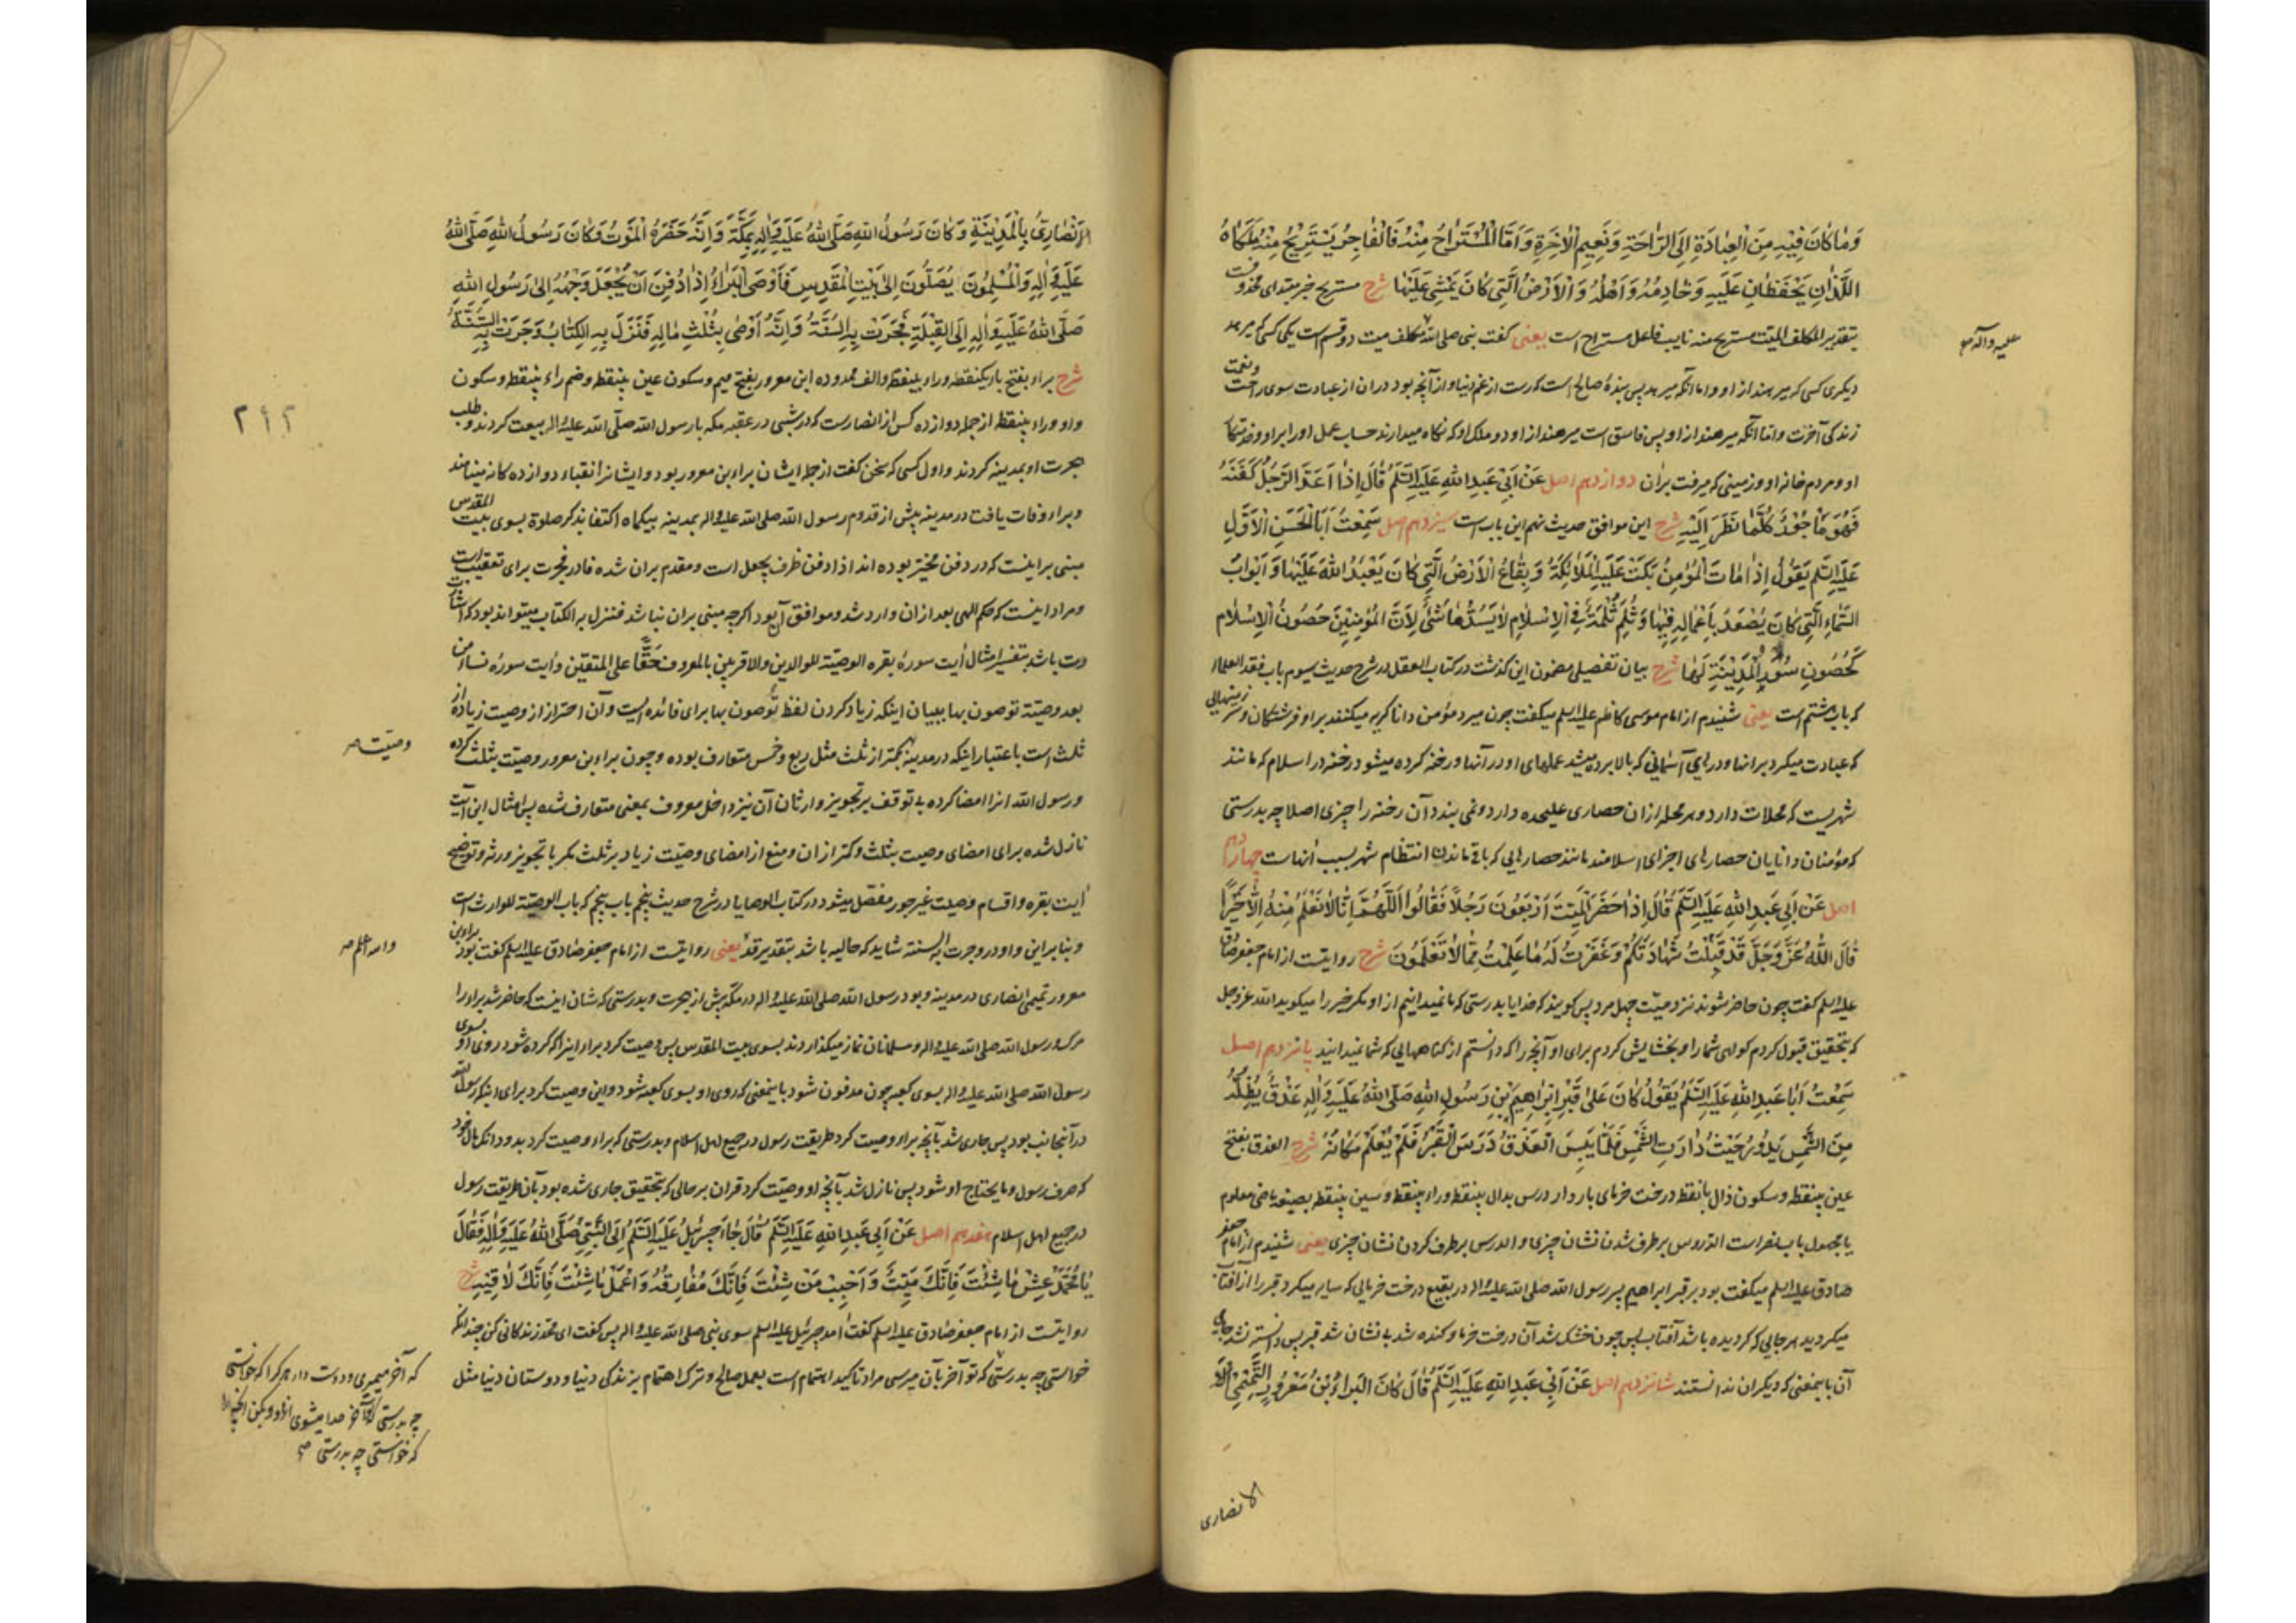 وَمٰا كٰانَ فِيهِ مِنَ الْعِبَادَةِ اِلَى الرّٰاحَةِ وَنَعِيمِ الْاٰخِرَةِ وَاَمَّا الْمُسْتَرٰاحُ مِنْهُ فَالْفٰاجِرُ يَسْتَرِيحُ مِنْهُ مَلَكٰاهُ
اللَّذٰانِ يَحْفَظٰانِ عَلَيْهِ وَخٰادِمُهُ وَاَهْلُهُ وَالْاَرْضُ الَّتِي كٰانَ يَمْشِي عَلَيْهٰا شرح مستریح خبر مبتدای محذوفست
بتقدیر المکلف المیّت مستریح منه نایب فاعل مستراح است یعنی گفت نبی صلی الله مکلف میت دو قسم است یکی کسی که میرهد
علیه وآله
دیگری کسی که میرهند از او و اما آنکه میرهد پس بندهٔ صالح است که رست از غم دنیا و از آنچه بود دران از عبادت سوی راحت و نعمت
زندکی آخرت و امّا آنکه میرهند از او پس فاسق است میرهند از او دو ملک او که نکاه میدارند حساب عمل او را برا و و خدمتکار
او و مردم خانه او و زمینی که میرفت بران دوازدهم اصل عَنْ اَبِي عَبْدِ اللّٰهِ عَلَيْهِ السَّلَمُ قٰالَ اِذٰا اَعَدَّ الرَّجُلُ كَفَنَهُ
فَهُوَ مَاْجُوْرٌ كُلَّمٰا نَظَرَ اِلَيْهِ شرح این موافق حدیث نهم این باب است سیزدهم اصل سَمِعْتُ اَبَا الْحَسَنِ الْاَوَّلِ
عَلَيْهِ السَّلَمُ يَقُولُ اِذٰا مٰاتَ الْمُؤْمِنُ بَكَتْ عَلَيْهِ الْمَلٰائِكَةُ وَبِقٰاعُ الْاَرْضِ الَّتِي كٰانَ يَعْبُدُ اللّٰهَ عَلَيْهٰا وَاَبْوٰابُ
السَّمٰاءِ الَّتِي كٰانَ يُصْعَدُ بِاَعْمٰالِهِ فِيْهٰا وَثُلِمَ ثُلْمَةٌ فِي الْاِسْلٰامِ لٰا يَسُدُّهٰا شَيْءٌ لِاَنَّ الْمُؤْمِنِيْنَ حُصُونُ الْاِسْلٰامِ
كَحُصُونِ سُوْرِ الْمَدِيْنَةِ لَهٰا شرح بیان تفصیلی مضمون این کذشت در کتاب العقل در شرح حدیث سیوم باب فقد العلماء
که باب هشتم است یعنی شنیدم از امام موسی کاظم علیه السلم میکفت چون میرد مؤمن دانا کریه میکنند بر او فرشتکان و سرزمینهایی
که عبادت میکرد بر آنها و درهای آسمانی که بالا برده میشد عملهای او در آنها و رخنه کرده میشود رخنه در اسلام که مانند
شهریست که محلات دارد و هر محله ازان حصاری علیحده دارد و نمی بندد آن رخنه را چیزی اصلا چه بدرستی
که مؤمنان دانایان حصارهای اجزای اسلامند مانند حصارهایی که باقی ماندن انتظام شهر بسبب آنهاست چهاردهم
اصل عَنْ اَبِي عَبْدِ اللّٰهِ عَلَيْهِ السَّلَمُ قٰالَ اِذٰا حَضَرَ الْمَيِّتَ اَرْبَعُونَ رَجُلًا فَقٰالُوا اَللّٰهُمَّ اِنّٰا لٰا نَعْلَمُ مِنْهُ اِلّٰا خَيْرًا
قٰالَ اللّٰهُ عَزَّ وَجَلَّ قَدْ قَبِلْتُ شَهٰادَتَكُمْ وَغَفَرْتُ لَهُ مٰا عَلِمْتُ مِمّٰا لٰا تَعْلَمُونَ شرح روایتست از امام جعفر صادق
علیه السلم گفت چون حاضر شوند نزد میّت چهل مرد پس کویند که خدایا بدرستی که ما نمیدانیم از او مکر خیر را میکوید الله عزوجل
که بتحقیق قبول کردم کواهی شما را و بخشایش کردم برای او آنچه را که دانستم از کناههایی که شما نمیدانید پانزدهم اصل
سَمِعْتُ اَبٰا عَبْدِ اللّٰهِ عَلَيْهِ السَّلَمُ يَقُولُ كٰانَ عَلٰى قَبْرِ اِبْرٰاهِيْمَ بْنِ رَسُولِ اللّٰهِ صَلَّى اللّٰهُ عَلَيْهِ وَاٰلِهِ عَذْقٌ يُظِلُّهُ
مِنَ الشَّمْسِ يَدُوْرُ حَيْثُ دٰارَتِ الشَّمْسُ فَلَمّٰا يَبِسَ الْعَذْقُ دَرَسَ الْقَبْرُ فَلَمْ يُعْلَمْ مَكٰانُهُ شرح العذق بفتح
عین بینقطه و سکون ذال بانقطه درخت خرمای باردار درس بدال بینقطه و راء بینقطه و سین بینقطه بصیغه ماضی معلوم
یا مجهول باب نصر است الدّروس برطرف شدن نشان چیزی و الدرس برطرف کردن نشان چیزی یعنی شنیدم از امام جعفر
صادق علیه السلم میکفت بود بر قبر ابراهیم پسر رسول الله صلی الله علیه واله در بقیع درخت خرمایی که سایه میکرد قبر را از آفتاب
میکردید هر جایی که کردیده باشد آفتاب پس چون خشک شد آن درخت خرما و کنده شد بی نشان شد قبر پس دانسته نشد جای
آن باینمعنی که دیکران ندانستند شانزدهم اصل عَنْ اَبِي عَبْدِ اللّٰهِ عَلَيْهِ السَّلَمُ قٰالَ كٰانَ الْبَرٰاءُ بْنُ مَعْرُورٍ التَّمِيْمِيُّ
الانصاری
الْاَنْصٰارِيُّ بِالْمَدِيْنَةِ وَكٰانَ رَسُولُ اللّٰهِ صَلَّى اللّٰهُ عَلَيْهِ وَاٰلِهِ بِمَكَّةَ وَاِنَّهُ حَضَرَهُ الْمَوْتُ وَكٰانَ رَسُولُ اللّٰهِ صَلَّى اللّٰهُ
عَلَيْهِ وَاٰلِهِ وَالْمُسْلِمُونَ يُصَلُّونَ اِلٰى بَيْتِ الْمَقْدِسِ فَاَوْصَى الْبَرٰاءُ اِذٰا دُفِنَ اَنْ يُجْعَلَ وَجْهُهُ اِلٰى رَسُولِ اللّٰهِ
صَلَّى اللّٰهُ عَلَيْهِ وَاٰلِهِ اِلَى الْقِبْلَةِ فَجَرَتْ بِهِ السُّنَّةُ وَاِنَّهُ اَوْصٰى بِثُلُثِ مٰالِهِ فَنَزَلَ بِهِ الْكِتٰابُ وَجَرَتْ بِهِ السُّنَّةُ
شرح براء بفتح باء یکنقطه و راء بینقطه و الف ممدوده ابن معرور بفتح میم و سکون عین بینقطه و ضم راء بینقطه و سکون
واو و راء بینقطه از جمله دوازده کس از انصار است که در شبی در عقبه مکه با رسول الله صلّی الله علیه واله بیعت کردند و طلب
۲۹۲
هجرت او بمدینه کردند و اول کسی که سخن گفت از جمله ایشان براء بن معرور بود و ایشانرا نقباء دوازده کانه مینامند
و براء وفات یافت در مدینه پیش از قدوم رسول الله صلی الله علیه واله بمدینه بیکماه اکتفا بذکر صلوة بسوی بیت المقدس
مبنی بر اینست که در دفن مخیّر بوده اند اذا دفن ظرف یجعل است و مقدم بران شده فا در فجرت برای تعقیبست
و مراد اینست که حکم الهی بعد ازان وارد شد و موافق آن بود اکرچه مبنی بران نباشد فنزل به الکتاب میتواند بود که اشارت
باشد بتفسیر امثال آیت سورهٔ بقره الوصیّة للوالدین والاقربین بالمعروف حَقًّا علی المتقین و آیت سورهٔ نساء من
بعد وصیّة توصون بها ببیان اینکه زیاد کردن لفظ توصون بها برای فائده ایست و آن احتراز از وصیت زیاده از
ثلث است باعتبار اینکه در مدینه کمتر از ثلث مثل ربع و خمس متعارف بوده و چون براء بن معرور وصیّت بثلث کرده
وصیّت
و رسول الله انرا امضا کرده بی توقف بر تجویز وارثان آن نیز داخل معروف بمعنی متعارف شده پس امثال این آیت
نازل شده برای امضای وصیت بثلث و کمتر ازان و منع از امضای وصیّت زیاد بر ثلث مکر با تجویز ورثه و توضیح
آیت بقره و اقسام وصیت غیر جور مفصل میشود در کتاب الوصایا در شرح حدیث پنجم باب پنجم که باب الوصیّة للوارث است
و بنابراین واو در و جرت به السنة شاید که حالیه باشد بتقدیر قد یعنی روایتست از امام جعفر صادق علیه السلم گفت بود براء بن
والله اعلم
معرور تمیمی انصاری در مدینه و بود رسول الله صلی الله علیه واله در مکّه پیش از هجرت و بدرستی که شان اینست که حاضر شد براء را
مرک و رسول الله صلی الله علیه واله و مسلمانان نماز میکذاردند بسوی بیت المقدس پس وصیت کرد براء اینرا که کرده شود روی او بسوی
رسول الله صلی الله علیه واله بسوی کعبه چون مدفون شود باینمعنی که روی او بسوی کعبه شود و این وصیت کرد برای اینکه رسول الله
در آنجانب بود پس جاری شد بآنچه براء وصیت کرد طریقت رسول در جمیع اهل اسلام و بدرستی که براء وصیت کرد بدو دانک مال خود
که صرف رسول و مایحتاج او شود پس نازل شد بآنچه او وصیّت کرد قران بر حالی که بتحقیق جاری شده بود بآن طریقت رسول
در جمیع اهل اسلام هفدهم اصل عَنْ اَبِي عَبْدِ اللّٰهِ عَلَيْهِ السَّلَمُ قٰالَ جٰاءَ جَبْرَئِيْلُ عَلَيْهِ السَّلَمُ اِلَى النَّبِيِّ صَلَّى اللّٰهُ عَلَيْهِ وَاٰلِهِ فَقٰالَ
يٰا مُحَمَّدُ عِشْ مٰا شِئْتَ فَاِنَّكَ مَيِّتٌ وَاَحْبِبْ مَنْ شِئْتَ فَاِنَّكَ مُفٰارِقُهُ وَاعْمَلْ مٰا شِئْتَ فَاِنَّكَ لٰاقِيْهِ شرح
روایتست از امام جعفر صادق علیه السلم گفت آمد جبرئیل علیه السلم سوی نبی صلی الله علیه واله پس گفت ای محمّد زندکانی کن چندانکه
خواستی چه بدرستی که تو آخر بآن میرسی مراد تاکید اهتمام است بعمل صالح و ترک اهتمام بزندکی دنیا و دوستان دنیا مثل
که آخر میمیری و دوست دار هر کرا که خواستی
چه بدرستی که تو آخر جدا میشوی از او و بکن آنچه را
که خواستی چه بدرستی